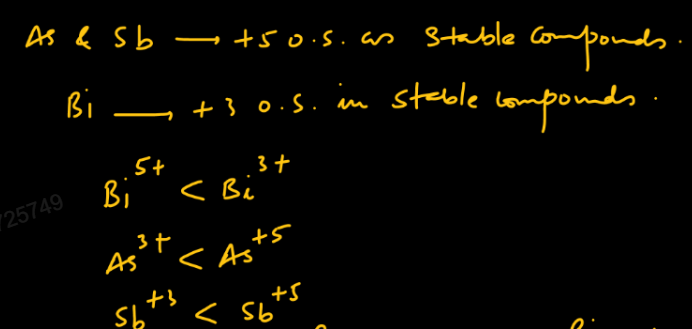 As & Sb → +5 o.s. as stable compounds.
Bi → +3 o.s. in stable compounds.
Bi⁵⁺ < Bi³⁺
725749
As³⁺ < As⁺⁵
Sb⁺³ < Sb⁺⁵